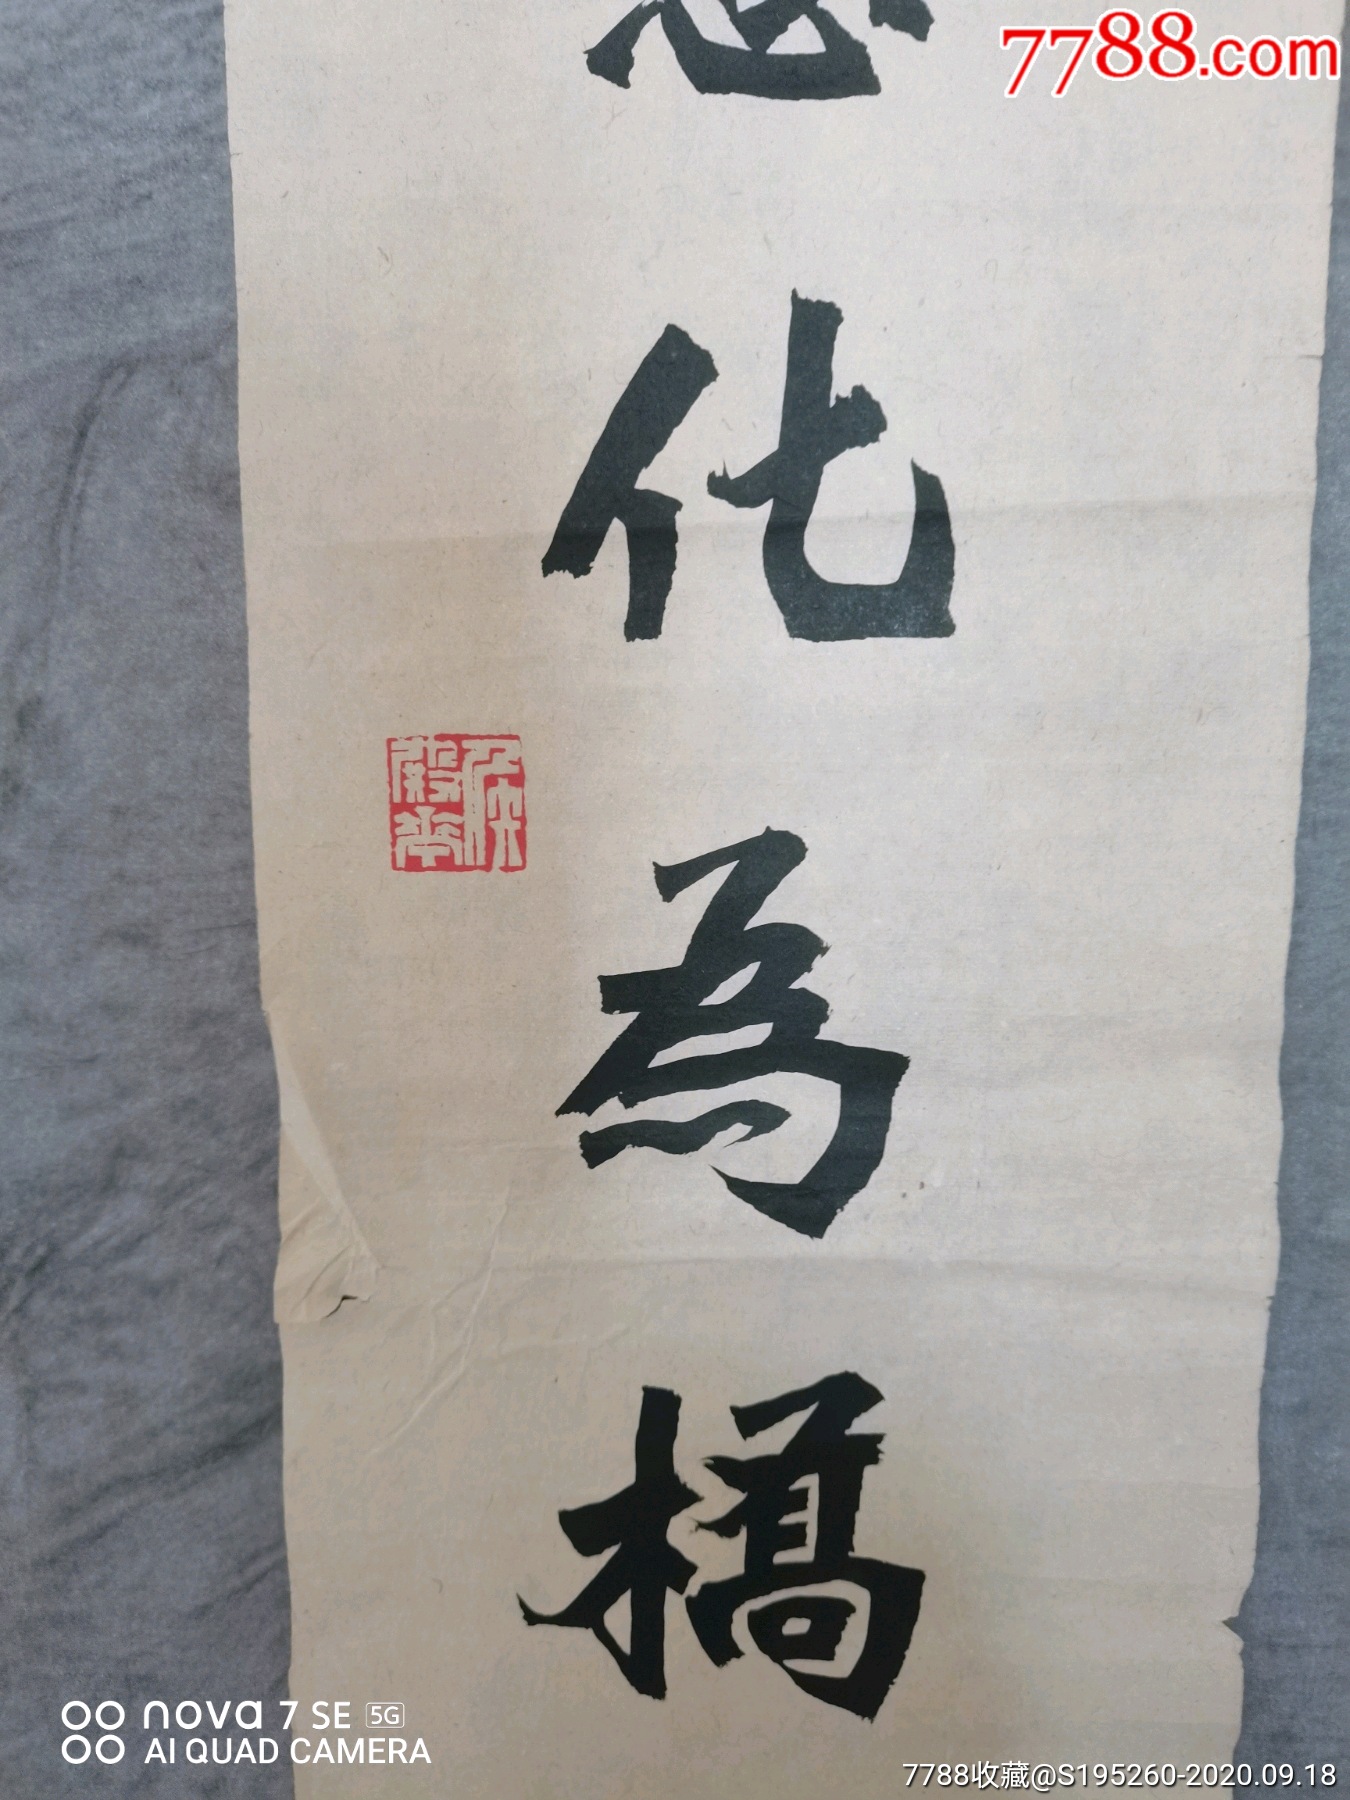 7788.com
化
為
橋
nova 7 SE 5G
AI QUAD CAMERA
7788收藏@S195260-2020.09.18